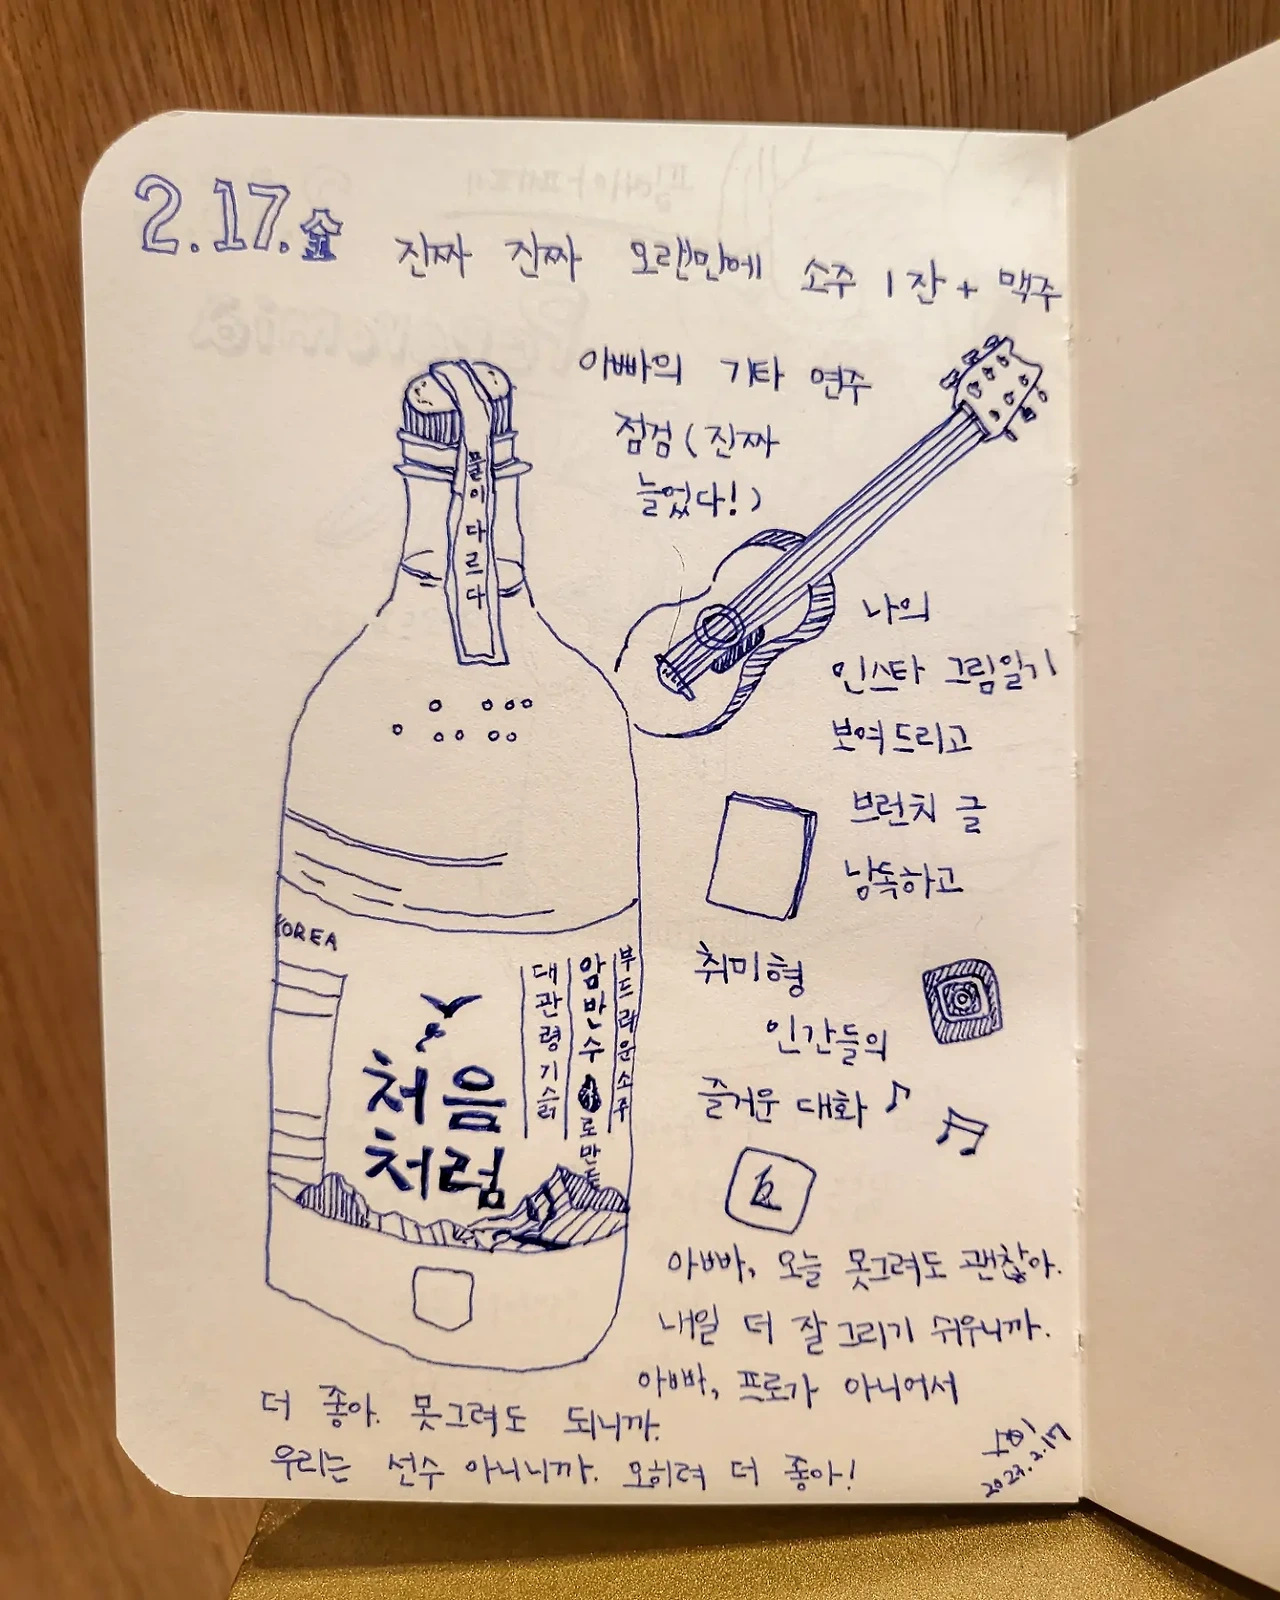 2.17.金
진짜 진짜 오랜만에 소주 1잔 + 맥주
아빠의 기타 연주
점검 (진짜
늘었다!)
물이 다르다
나의
인스타 그림일기
보여드리고
브런치 글
낭독하고
KOREA
부드러운소주
암반수로만든
대관령기슭
처음
처럼
취미형
인간들의
즐거운 대화 ♪
아빠, 오늘 못그려도 괜찮아.
내일 더 잘그리기 쉬우니까.
아빠, 프로가 아니어서
더 좋아. 못그려도 되니까.
우리는 선수 아니니까. 오히려 더 좋아!
2023.2.17